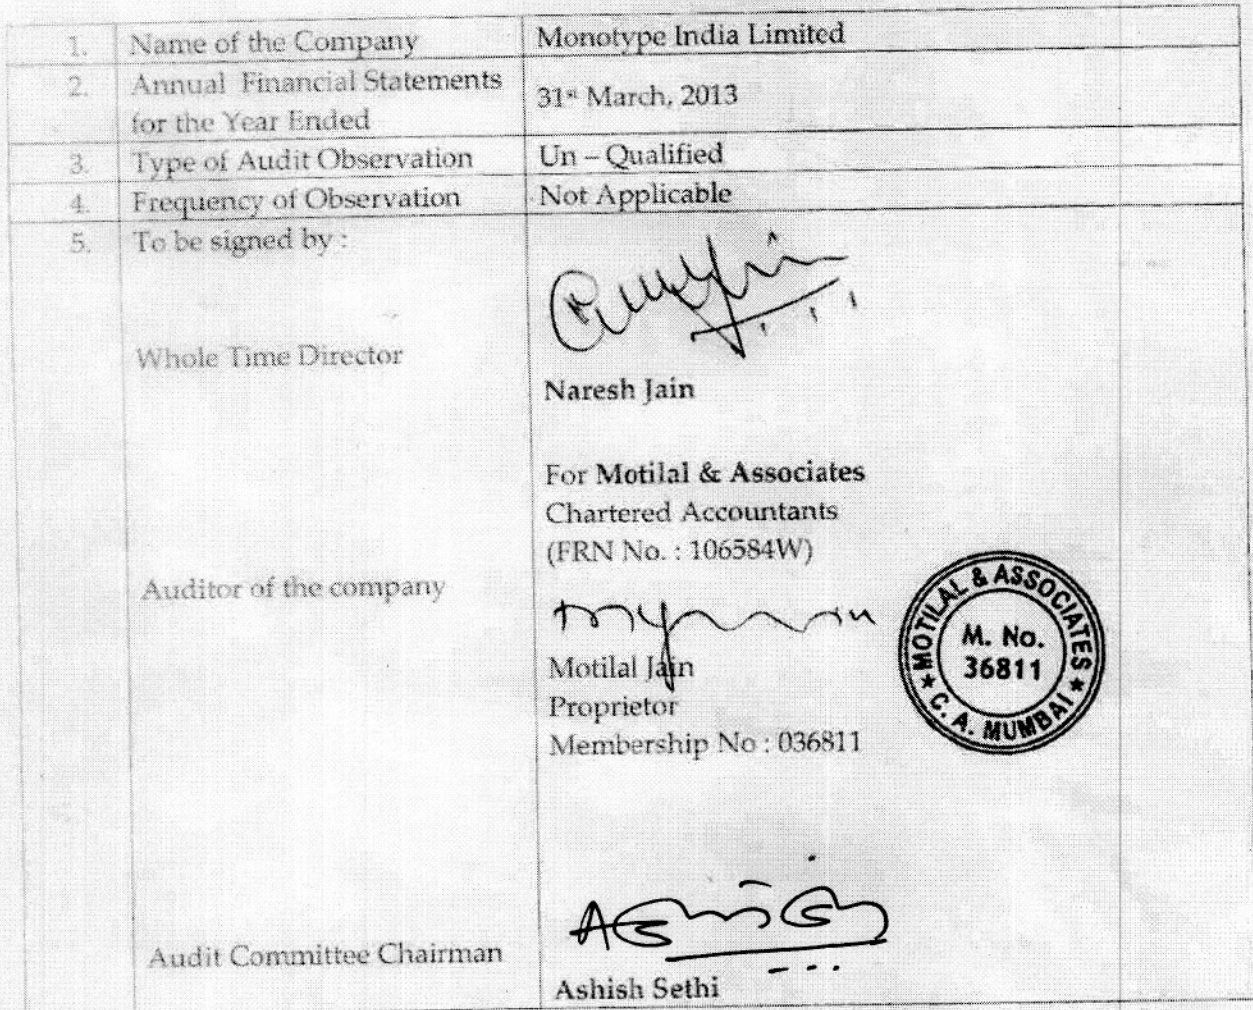 1. Name of the Company Monotype India Limited
2. Annual Financial Statements
for the Year Ended 31st March, 2013
3. Type of Audit Observation Un – Qualified
4. Frequency of Observation Not Applicable
5. To be signed by :
Whole Time Director
Naresh Jain
For Motilal & Associates
Chartered Accountants
(FRN No. : 106584W)
Auditor of the company
Motilal Jain
Proprietor
Membership No : 036811
MOTILAL & ASSOCIATES
M. No.
36811
★ C. A. MUMBAI ★
Audit Committee Chairman
Ashish Sethi